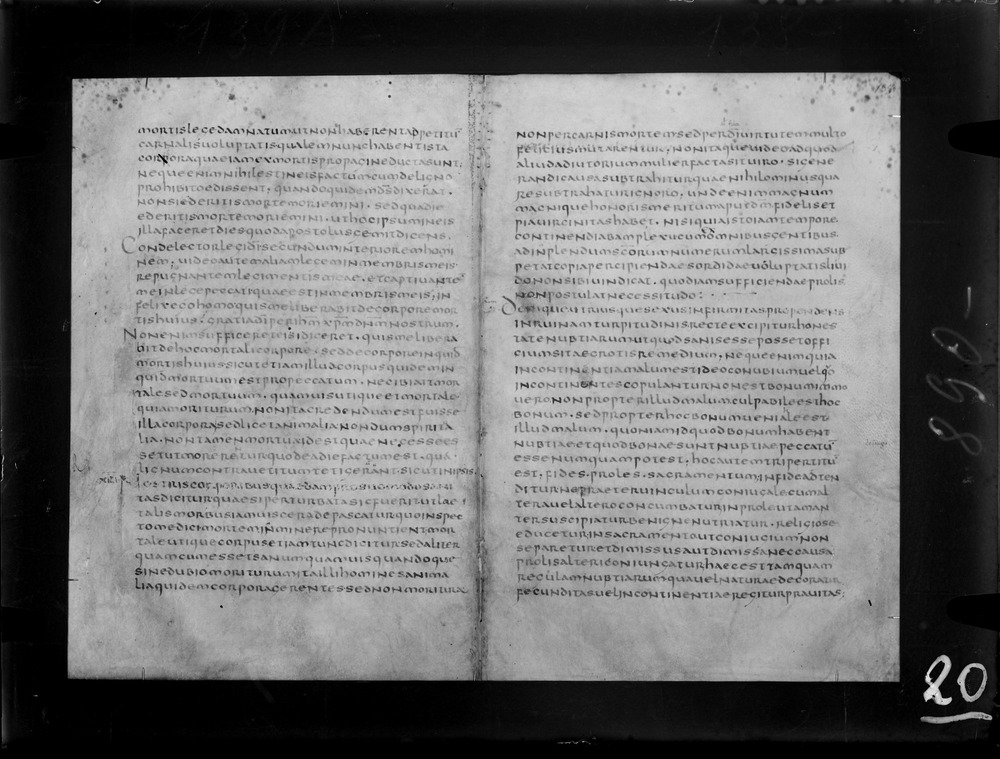 MORTISLEGEDAMNATUMUTNONHABERENTAPPETITŪ
CARNALISUOLUPTATISQUALEMNUNCHABENTISTA
CORPORAQUAEIAMEXMORTISPROPAGINEDUCTASUNT.
NEQUEENIMNIHILESTINEISFACTUMCUMDELIGNO
PROHIBITOEDISSENT. QUANDOQUIDEMD̄SDIXERAT.
NONSIEDERITISMORTEMORIEMINI. SEDQUADIE
EDERITISMORTEMORIEMINI. UTHOCIPSUMINEIS
ILLAFACERETDIESQUODAPOSTOLUSGEMITDICENS.
CONDELECTORLEGID̄ISECUNDUMINTERIOREMHOMI
NEM. UIDEOAUTEMALIAMLEGEMINMEMBRISMEIS
REPUGNANTEMLEGIMENTISMEAE. ETCAPTIUANTĒ
MEINLEGEPECCATIQUAEESTINMEMBRISMEIS. IN
FELIXEGOHOMOQUISMELIBERABITDECORPOREMOR
TISHUIUS. GRATIAD̄IPERIHM̄XPM̄DN̄MNOSTRUM.
NONENIMSUFFICERETEISIDICERET. QUISMELIBERA
BITDEHOCMORTALICORPORE. SEDDECORPOREINQUID
MORTISHUIUSSICUTETIAMILLUDCORPUSQUIDEMIN
QUIDMORTUUMESTPROPECCATUM. NECIBIAITMOR
TALESEDMORTUUM. QUAMUISUTIQUEETMORTALE
QUIAMORITURUM. NONITACREDENDUMESTFUISSE
ILLACORPORASEDLICETANIMALIANONDUMSPIRITA
LIA. NONTAMENMORTUAIDESTQUAENECESSEES
SETUTMORERETURQUODEADIEFACTUMEST. QUA
LIGNUMCONTRAUETITUMTETIGERANT. SICUTINIPSIS
TASDICITURQUAESIPERTURBATASICFUERITUTLAE
TALISMORBUSIAMUISCERADEPASCATURQUOINSPEC
TOMEDICIMORTEMIMMINEREPRONUNTIENTMOR
TALEUTIQUECORPUSETIAMTUNCDICITURSEDALITER
QUAMCUMESSETSANUMQUAMUISQUANDOQUE
SINEDUBIOMORITURUM. ITAILLIHOMINESANIMA
LIAQUIDEMCORPORAGERENTESSEDNONMORITURA
NONPERCARNISMORTEMSEDPERD̄IUIRTUTEMMULTO
FELICIUSMUTARENTUR. NONITAQUEUIDEOADQUOD
ALIUDADIUTORIUMMULIERFACTASITUIRO. SIGENE
RANDICAUSASUBTRAHITURQUAENIHILOMINUSQUA
RESUBTRAHATURIGNORO. UNDEENIMMAGNUM
MAGNIQUEHONORISMERITUMAPUDD̄MFIDELISET
PIAUIRGINITASHABET. NISIQUIAISTOIAMTEMPORE
CONTINENDIABAMPLEXUCUMOMNIBUSGENTIBUS
ADINPLENDUMSC̄ORUMNUMERUMLARGISSIMASUB
PETATCOPIAPERCIPIENDAESORDIDAEUOLUPTATISLIUI
DONONSIBIUINDICAT. QUODIAMSUFFICIENDAEPROLIS
NONPOSTULATNECESSITUDO:
DENIQUEUTRIUSQUESEXUSINFIRMITASPROPENDENS
INRUINAMTURPITUDINISRECTEEXCIPITURHONES
TATENUBTIARUMUTQUODSANISESSEPOSSETOFFI
CIUMSITAEGROTISREMEDIUM. NEQUEENIMQUIA
INCONTINENTIAMALUMESTIDEOCONUBIUMUELQUO
INCONTINENTESCOPULANTURNONESTBONUMIMMO
UERONONPROPTERILLUDMALUMCULPABILEESTHOC
BONUM. SEDPROPTERHOCBONUMUENIALEEST
ILLUDMALUM. QUONIAMIDQUODBONUMHABENT
NUBTIAEETQUODBONAESUNTNUBTIAEPECCATŪ
ESSENUMQUAMPOTEST. HOCAUTEMTRIPERTITŪ
EST. FIDES. PROLES. SACRAMENTUM. INFIDEADTEN
DITURNEPRAETERUINCULUMCONIUGALECUMAL
TERAUELALTEROCONCUMBATURINPROLEUTAMAN
TERSUSCIPIATURBENIGNENUTRIATUR. RELIGIOSE
EDUCETURINSACRAMENTOUTCONIUGIUMNON
SEPARETURETDIMISSUSAUTDIMISSANECCAUSA
PROLISALTERICONIUNGATURHAECESTTAMQUAM
REGULAMNUBTIARUMQUAUELNATURAEDECORATUR
FECUNDITASUELINCONTINENTIAEREGITURPRAUITAS;
890-
20